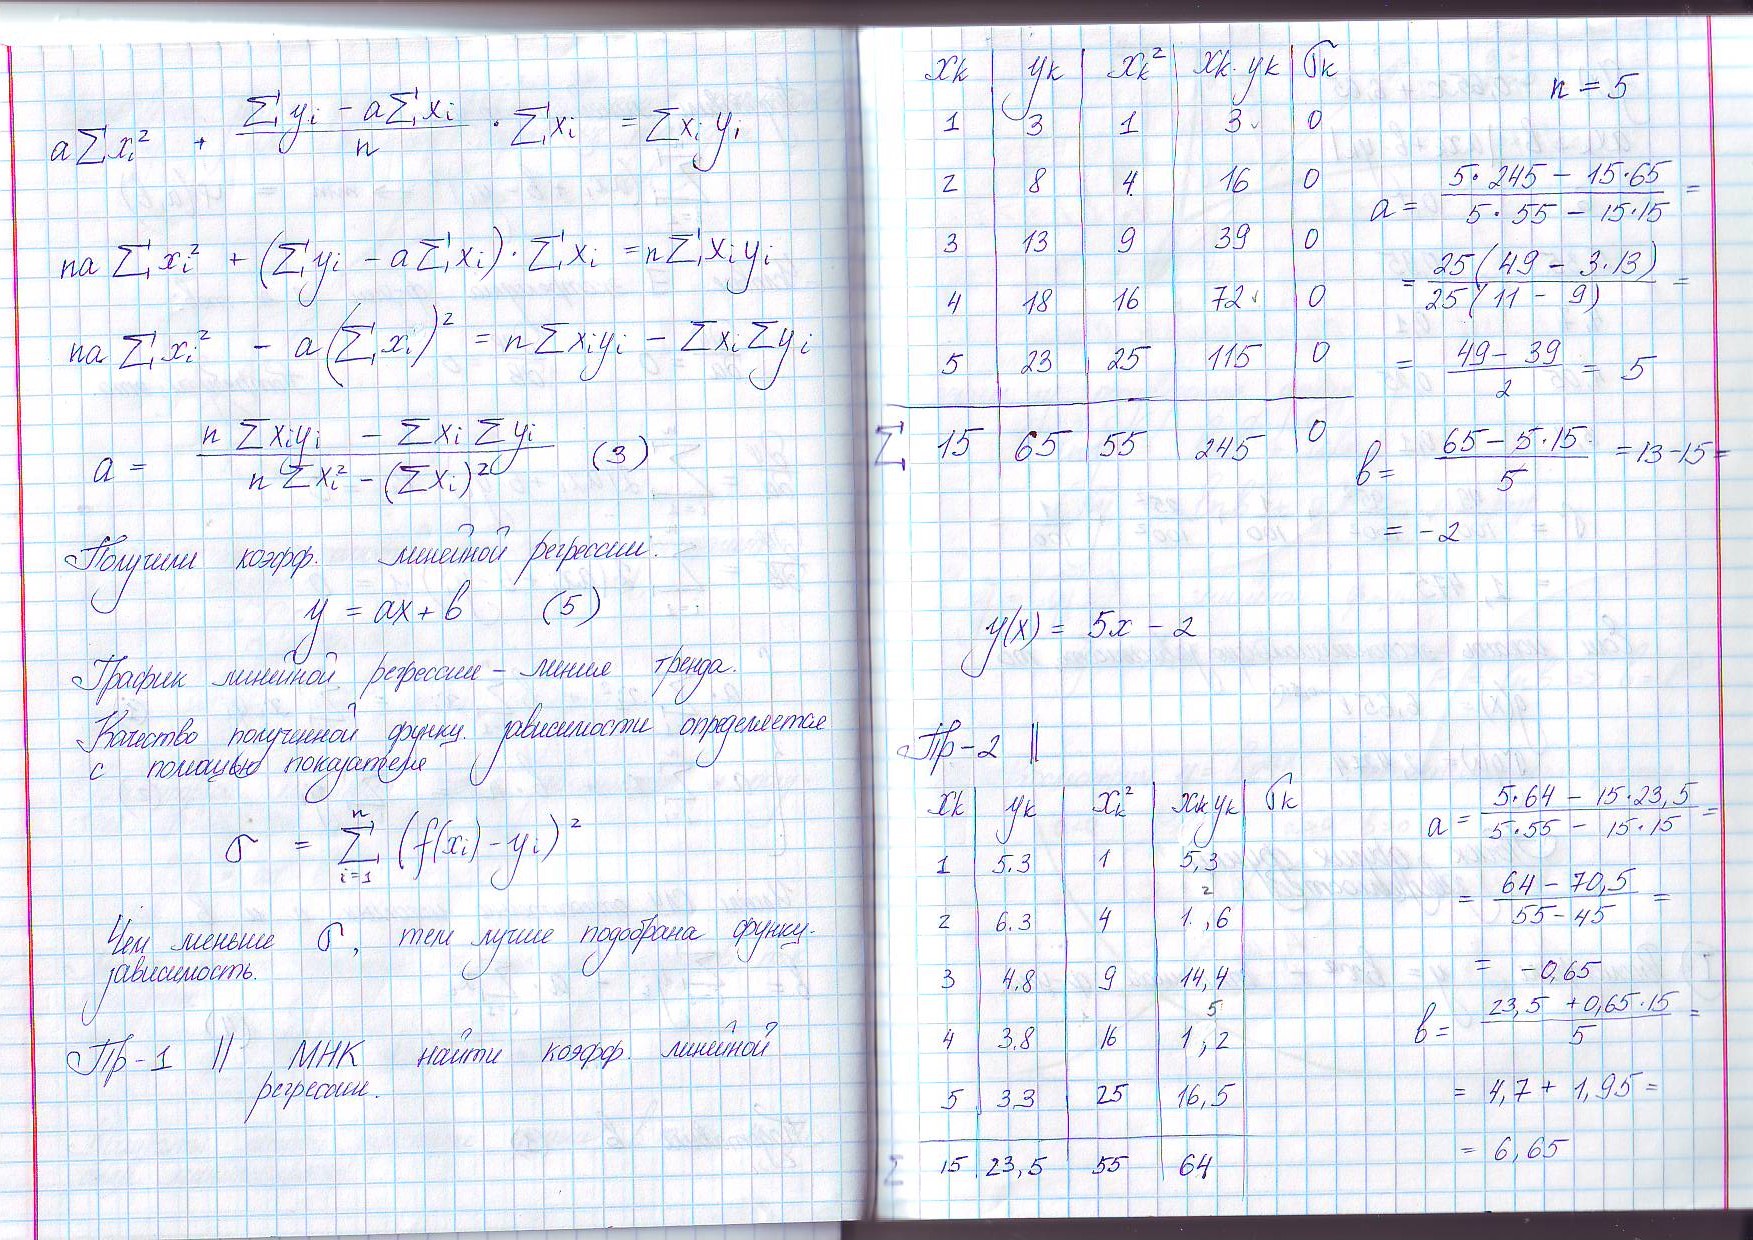 a∑xᵢ² + (∑yᵢ − a∑xᵢ)/n · ∑xᵢ = ∑xᵢyᵢ
na∑xᵢ² + (∑yᵢ − a∑xᵢ) · ∑xᵢ = n∑xᵢyᵢ
na∑xᵢ² − a(∑xᵢ)² = n∑xᵢyᵢ − ∑xᵢ∑yᵢ
a = (n∑xᵢyᵢ − ∑xᵢ∑yᵢ)/(n∑xᵢ² − (∑xᵢ)²) (3)
Получили коэфф. линейной регрессии.
y = ax + b (5)
График линейной регрессии – линия тренда.
Качество полученной функц. зависимости определяется
с помощью показателя
σ = ∑ᵢ₌₁ⁿ (f(xᵢ) − yᵢ)²
Чем меньше σ, тем лучше подобрана функц.
зависимость.
Пр-1 || МНК найти коэфф. линейной
регрессии.
xk yk xk² xk·yk σk
1 3 1 3 0
2 8 4 16 0
3 13 9 39 0
4 18 16 72 0
5 23 25 115 0
∑ 15 65 55 245 0
n = 5
a = (5·245 − 15·65)/(5·55 − 15·15) =
= 25(49 − 3·13)/25(11 − 9) =
= (49 − 39)/2 = 5
b = (65 − 5·15)/5 = 13 − 15 =
= −2
y(x) = 5x − 2
Пр-2 ||
xk yk xk² xk·yk σk
1 5.3 1 5,3
2 6.3 4 12,6
3 4.8 9 14,4
4 3.8 16 15,2
5 3.3 25 16,5
∑ 15 23,5 55 64
a = (5·64 − 15·23,5)/(5·55 − 15·15) =
= (64 − 70,5)/(55 − 45) =
= −0,65
b = (23,5 + 0,65·15)/5 =
= 4,7 + 1,95 =
= 6,65